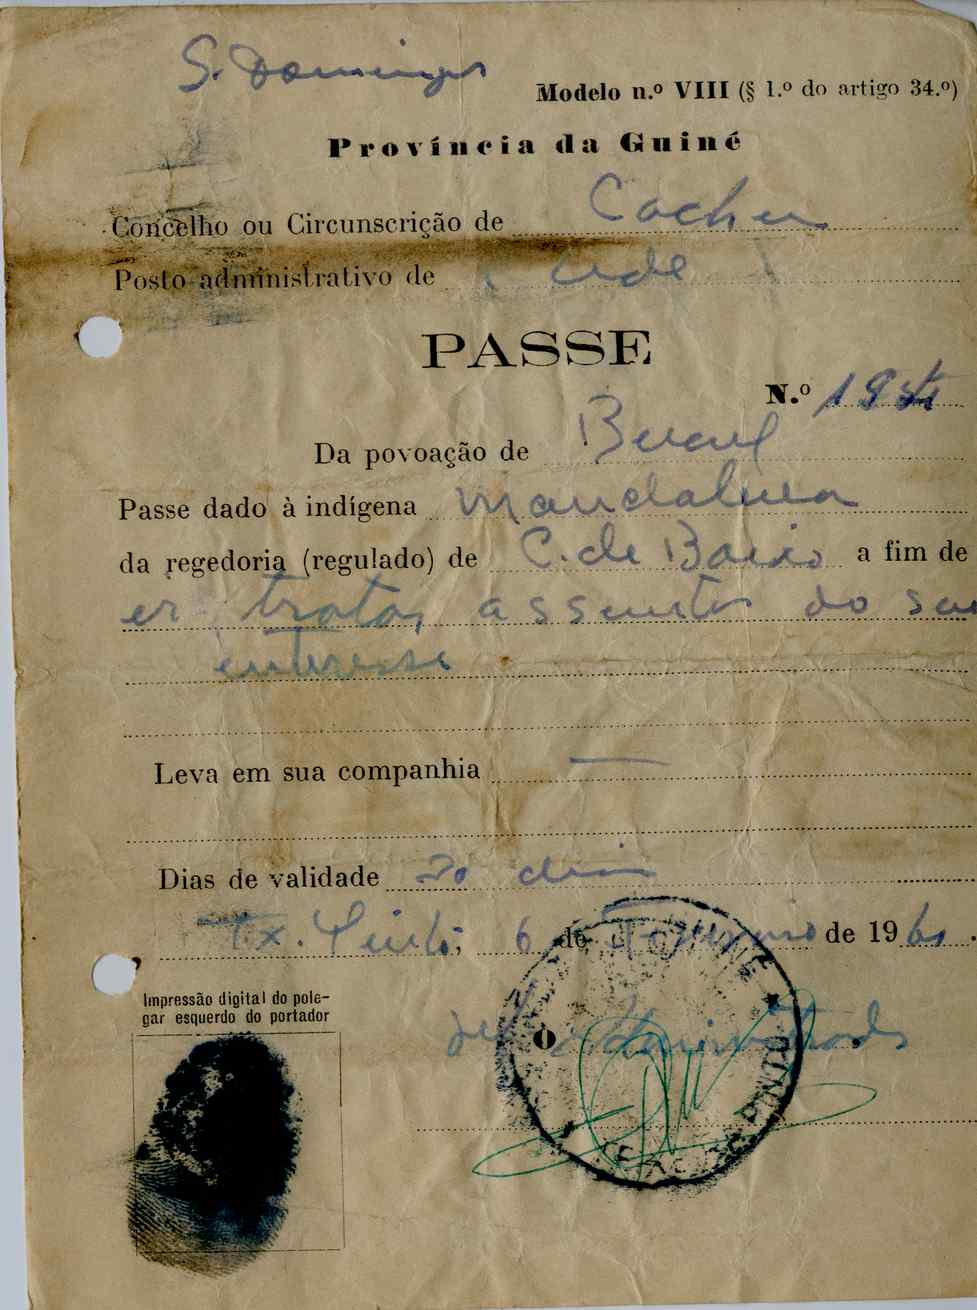 S. Domingos
Modelo n.º VIII (§ 1.º do artigo 34.º)
Província da Guiné
Concelho ou Circunscrição de Cacheu
Posto administrativo de Sede
PASSE
N.º
Da povoação de
Passe dado à indígena
da regedoria (regulado) de C. de Baixo a fim de
ir tratar assuntos do seu
interesse
Leva em sua companhia —
Dias de validade dias
Tx. Pinto, 6 de de 196
Impressão digital do pole-
gar esquerdo do portador
O Administrador
TEIXEIRA PINTO